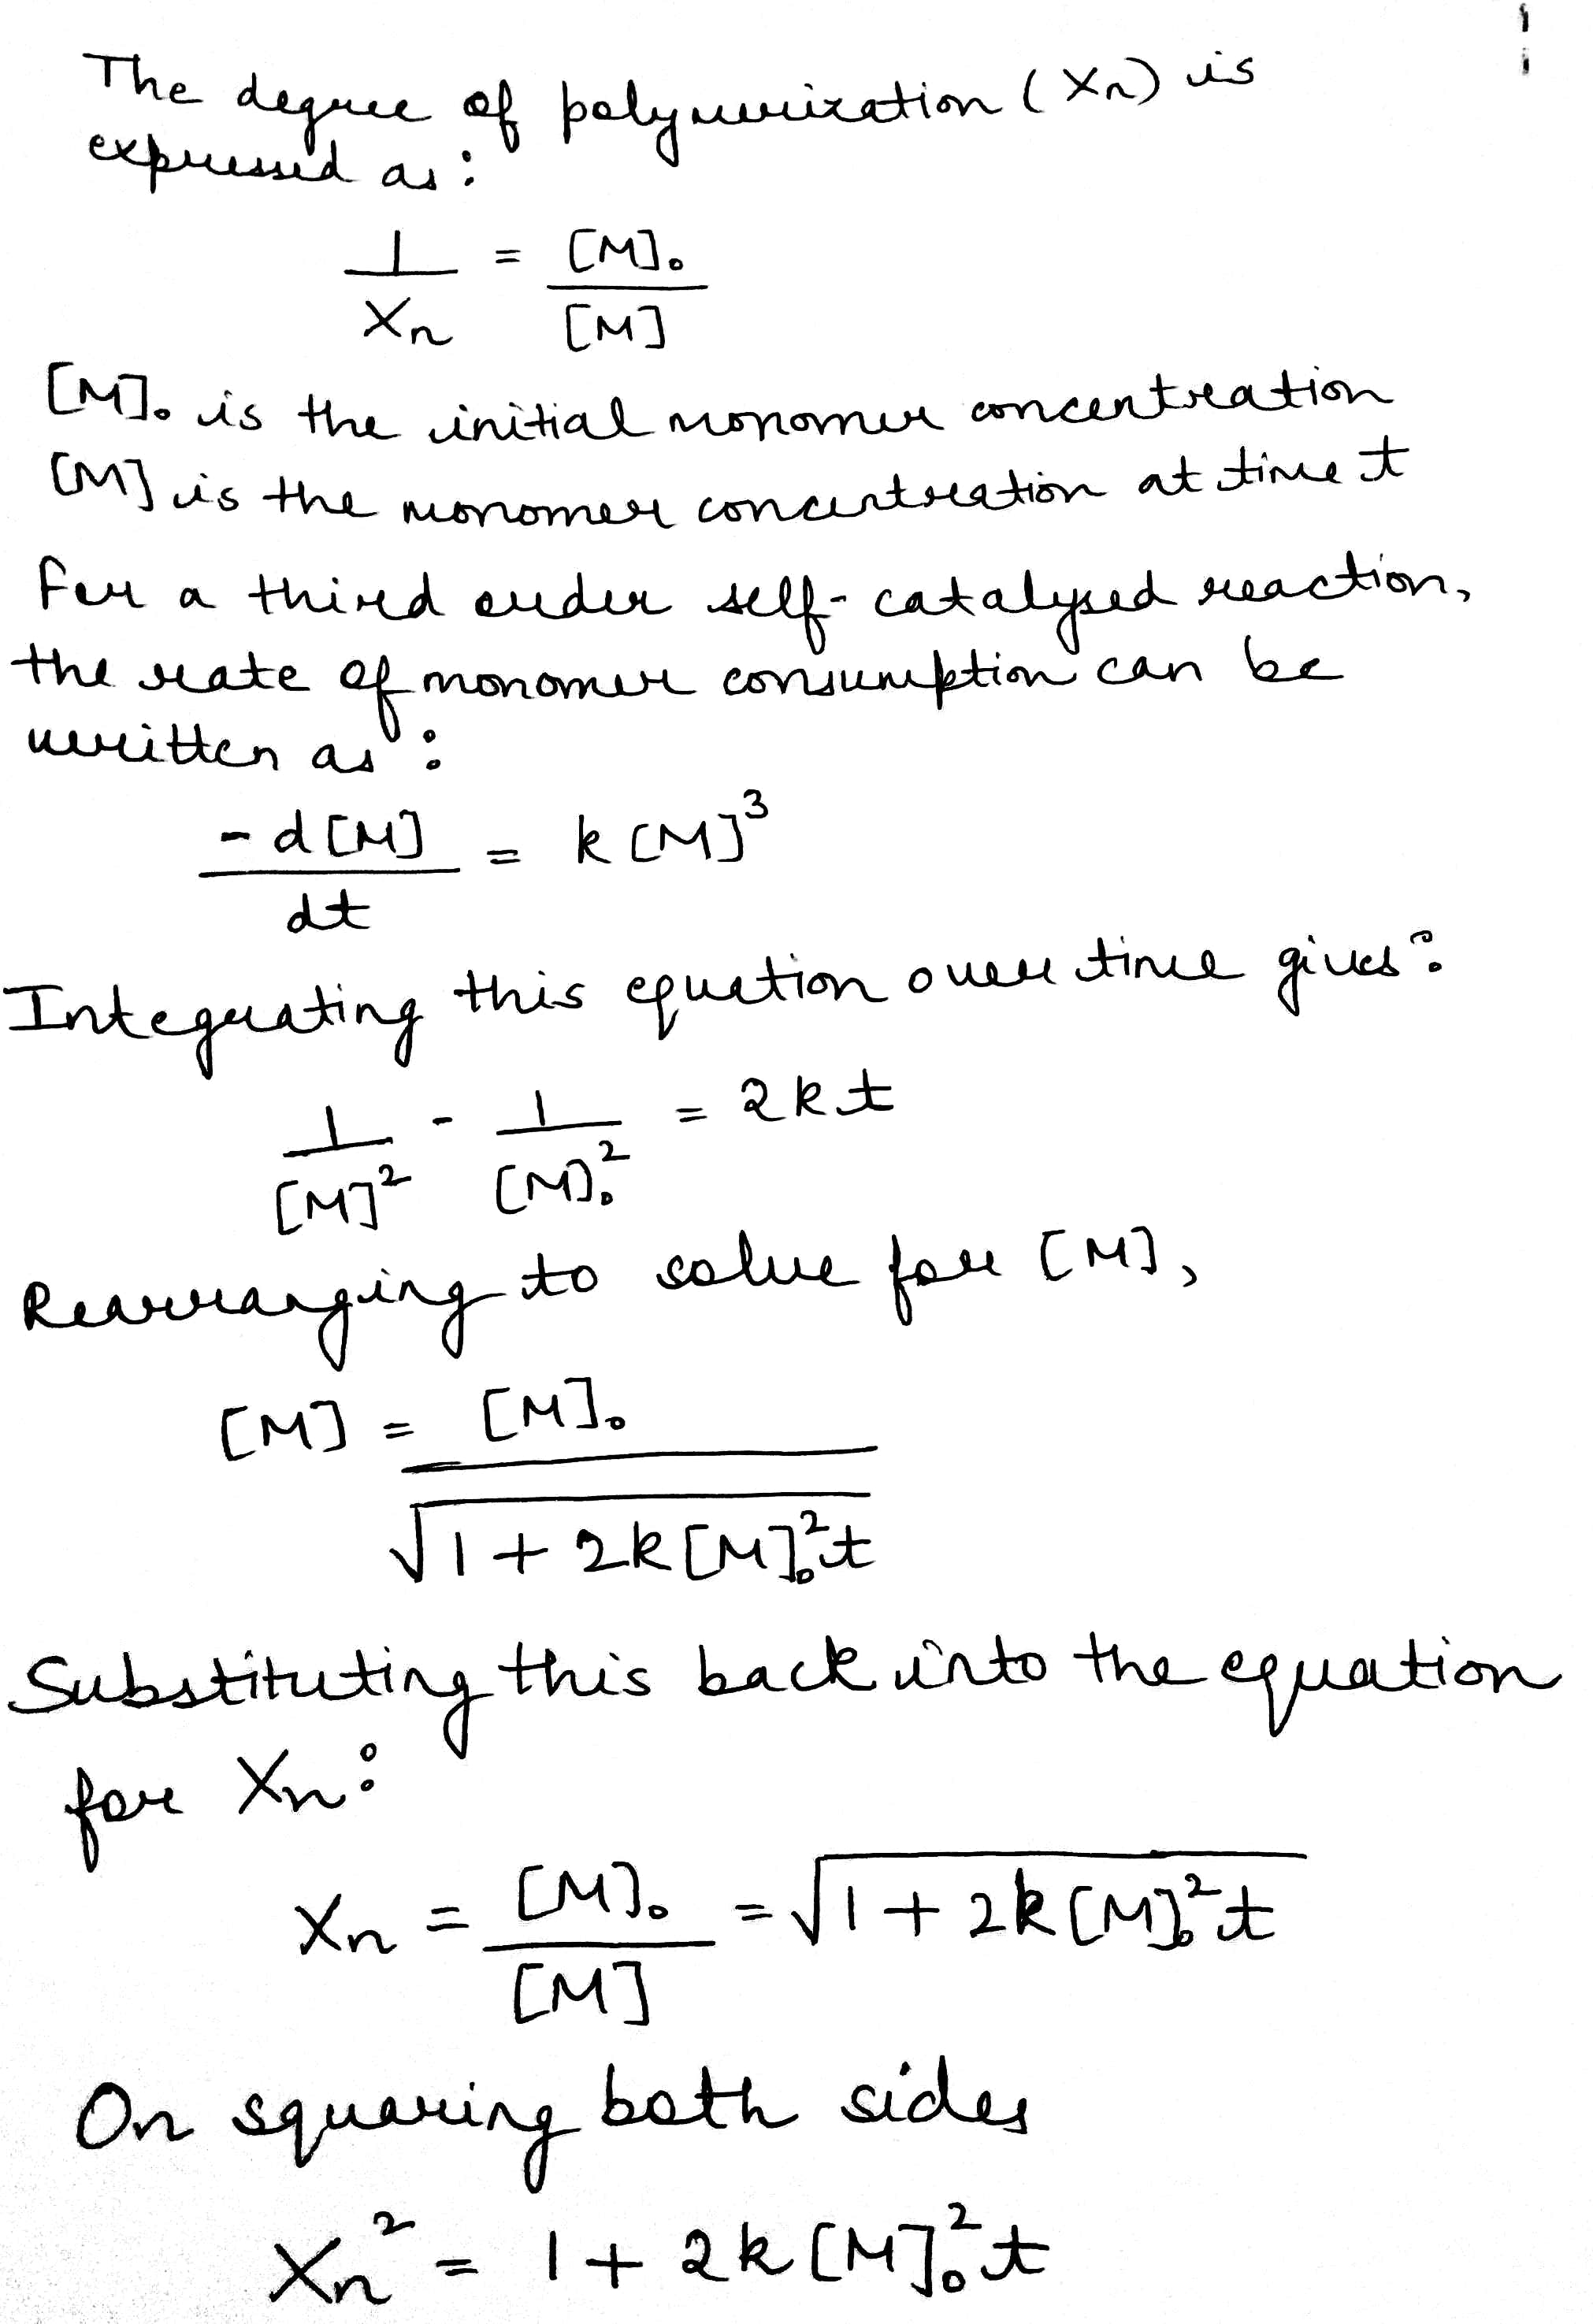 The degree of polymerization (Xn) is
expressed as:
1/Xn = [M]₀/[M]
[M]₀ is the initial monomer concentration
[M] is the monomer concentration at time t
For a third order self-catalysed reaction,
the rate of monomer consumption can be
written as:
-d[M]/dt = k[M]³
Integrating this equation over time gives:
1/[M]² - 1/[M]₀² = 2kt
Rearranging to solve for [M],
[M] = [M]₀/√(1 + 2k[M]₀²t)
Substituting this back into the equation
for Xn:
Xn = [M]₀/[M] = √(1 + 2k[M]₀²t)
On squaring both sides
Xn² = 1 + 2k[M]₀²t